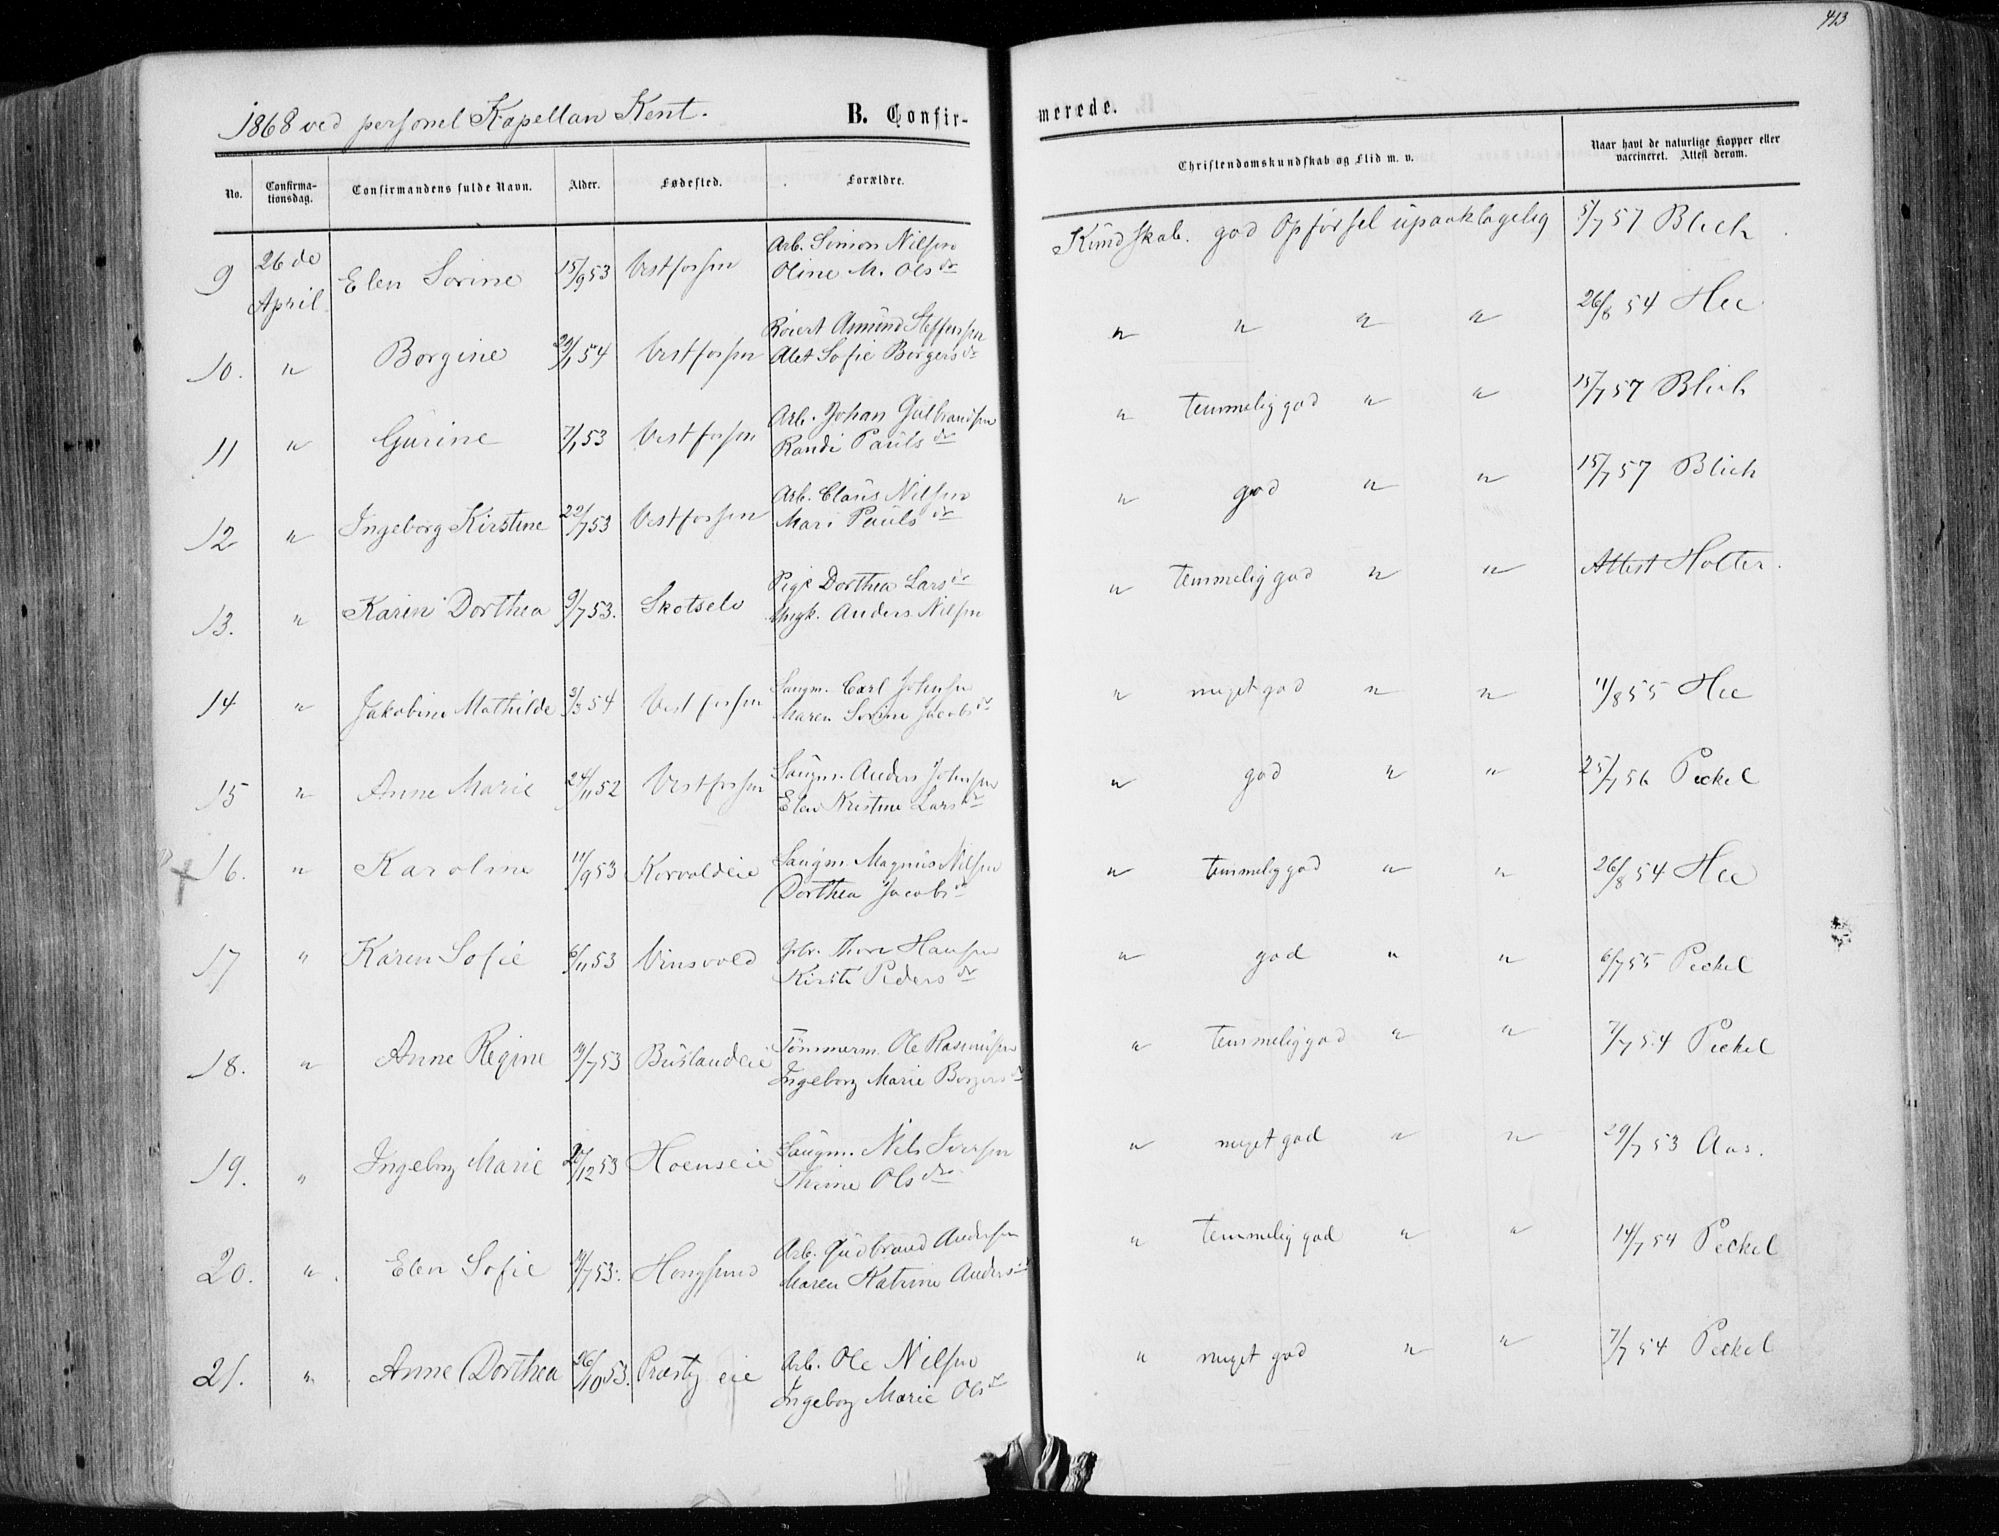 413
1868 ved personel Kapellan Kent.
B. Confirmerede.
No. Confirmationsdag. Confirmandens fulde Navn. Alder. Fødested. Forældre. Christendomskundskab og Flid m. v. Naar havt de naturlige Kopper eller vaccineret. Attest derom.
9 26de April Elen Sorine 15/9 53 Vestfossen Arb. Simon Nilsen Kundskab. god Opførsel upaaklagelig 5/7 57 Blich
Oline M. Olsdr
10. " Borgine 29/1 54 Vestfossen Amund Steffensen " " " " 26/8 54 Hee
Alet Sofie Borgersdr
11 " Gurine 7/1 53 Vestfossen Arb. Johan Gulbrandsen " temmelig god " " 15/7 57 Blich
Randi Paulsdr
12 " Ingeborg Kirstine 22/7 53 Vestfossen Arb. Claus Nilsen " god " " 15/7 57 Blich
Mari Paulsdr
13. " Karen Dorthea 9/7 53. Skotselv Pige Dorthea Larsdr " temmelig god " " Attest Holter.
Ungk. Anders Nilsen
14 " Jakobine Mathilde 3/3 54 Vestfossen Saugm. Carl Johnsen " meget god " " 11/8 55 Hee
Maren Sorine Jacobsdr
15 " Anne Marie 24/11 52 Vestfossen Saugm. Anders Johnsen " god " " 25/7 56 Peckel
Elen Kristine Larsdr
16. " Karoline 11/9 53 Korvoldeie Saugm. Magnus Nilsen " temmelig god " " 26/8 54 Hee
Dorthea Jacobsdr
17 " Karen Sofie 6/11 53 Vinsvold Thore Hansen " god " " 6/7 55 Peckel
Kirsti Pedersdr
18. " Anne Regine 19/7 53 Buslandeie Tömmerm. Ole Rasmusen " temmelig god " " 7/7 54 Peckel
Ingeborg Marie Borgersdr
19. " Ingeborg Marie /12 53 Hoenseie Saugm. Nils Iversen " meget god " " 29/7 53 Aas.
Thrine Olsdr
20. " Elen Sofie /7 53. Hougsund Arb. Gudbrand Andersen " temmelig god " " 14/7 54 Peckel
Maren Katrine Andersdr
21. " Anne Dorthea 26/10 53. Præstgeie Arb. Ole Nilsen " meget god " " 7/7 54 Peckel
Ingeborg Marie Olsdr